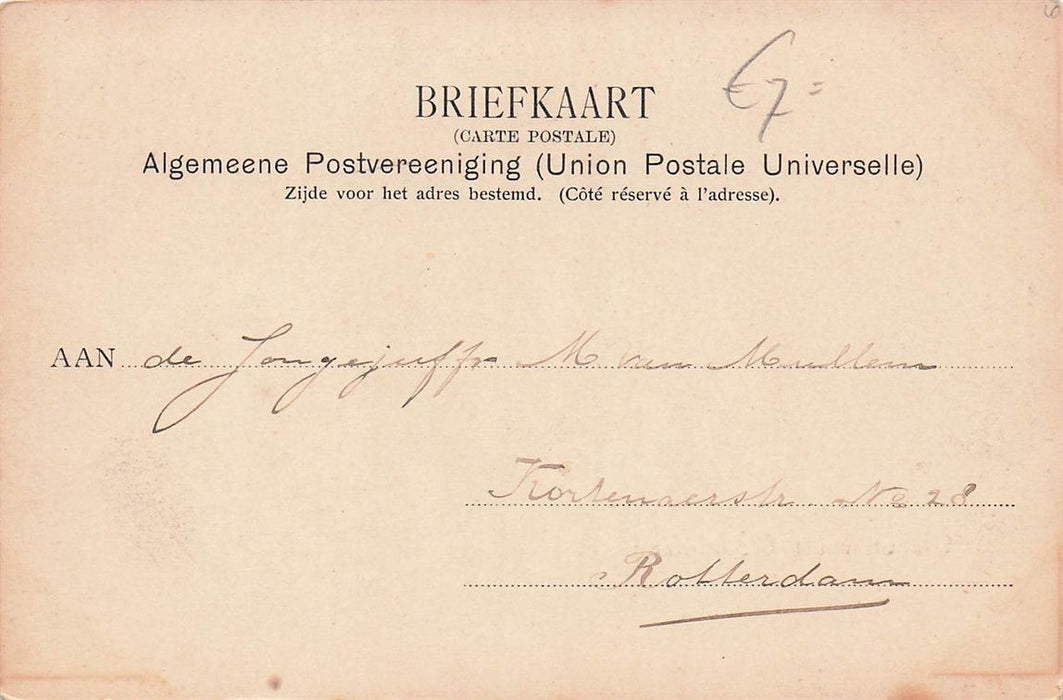 €7=
BRIEFKAART
(CARTE POSTALE)
Algemeene Postvereeniging (Union Postale Universelle)
Zijde voor het adres bestemd. (Côté réservé à l'adresse).
AAN de Jongejuffr M van Mullem
Kortenaerstr No 28
Rotterdam